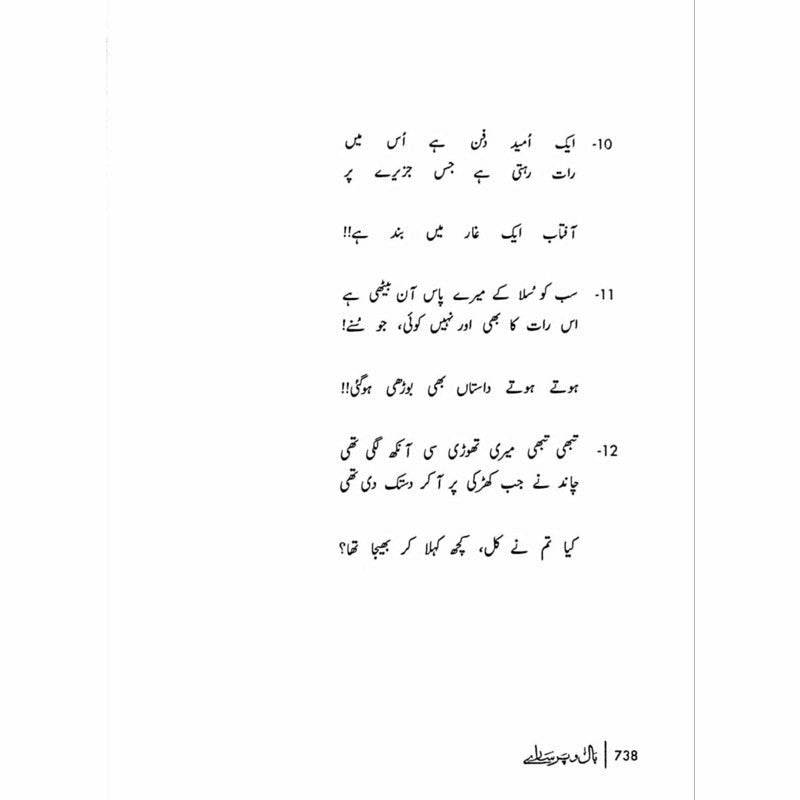 10- ایک اُمید دفن ہے اُس میں
رات رہتی ہے جس جزیرے پر
آفتاب ایک غار میں بند ہے!!
11- سب کو سُلا کے میرے پاس آن بیٹھی ہے
اس رات کا بھی اور نہیں کوئی، جو سُنے!
ہوتے ہوتے داستاں بھی بوڑھی ہوگئی!!
12- تبھی تبھی میری تھوڑی سی آنکھ لگی تھی
چاند نے جب کھڑکی پر آ کر دستک دی تھی
کیا تم نے کل، کچھ کہلا کر بھیجا تھا؟
738 | بال و پر سارے